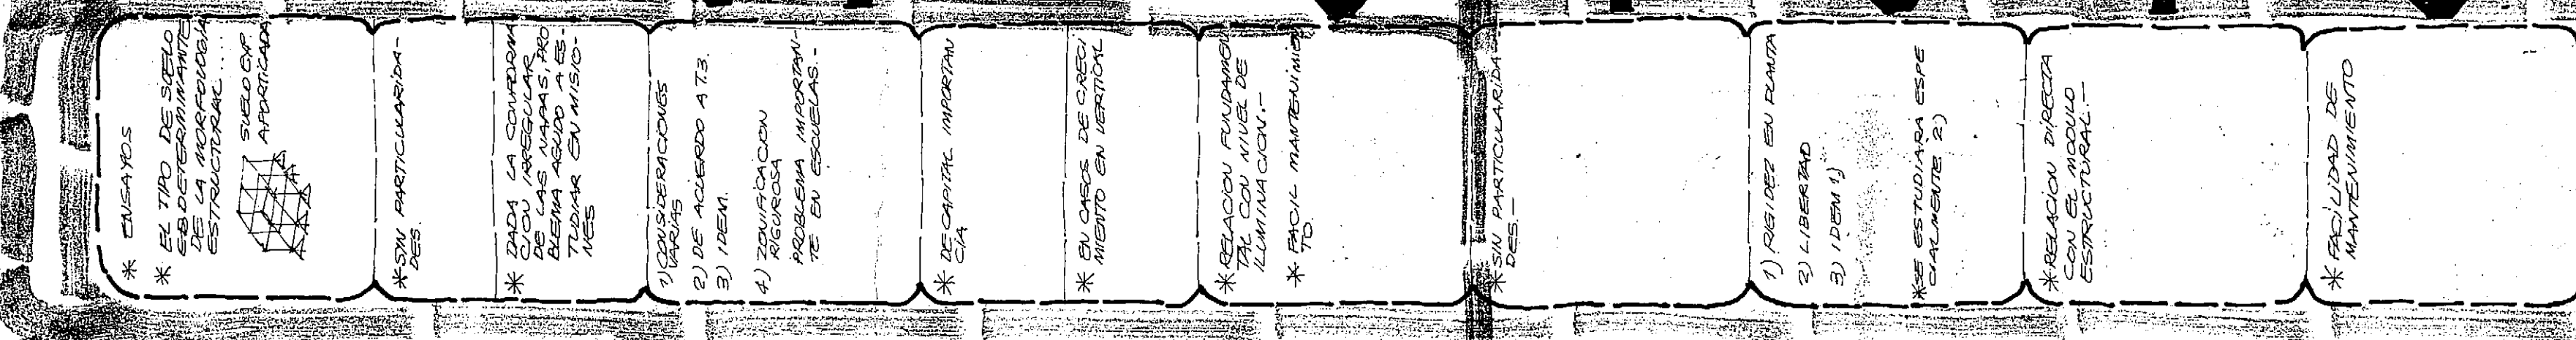 * ENSAYOS
* EL TIPO DE SUELO
ES DETERMINANTE
DE LA MORFOLOGIA
ESTRUCTURAL....
SUELO EXP.
APORTICADA
* SIN PARTICULARIDA-
DES.
* DADA LA CONFORMA
CION IRREGULAR
DE LAS NAPAS, PRO
BLEMA AGUDO A ES-
TUDIAR EN MISIO-
NES
1) CONSIDERACIONES
VARIAS
2) DE ACUERDO A T3.
3) IDEM.
4) ZONIFICACION
RIGUROSA
PROBLEMA IMPORTAN-
TE EN ESCUELAS.-
* DE CAPITAL IMPORTAN
CIA
* EN CASOS DE CRECI
MIENTO EN VERTICAL
* RELACION FUNDAMEN
TAL CON NIVEL DE
ILUMINACION.-
* FACIL MANTENIMIEN
TO.
* SIN PARTICULARIDA
DES.-
1) RIGIDEZ EN PLANTA
2) LIBERTAD
3) IDEM 1)
* SE ESTUDIARA ESPE
CIALMENTE 2)
* RELACION DIRECTA
CON EL MODULO
ESTRUCTURAL.-
* FACILIDAD DE
MANTENIMIENTO